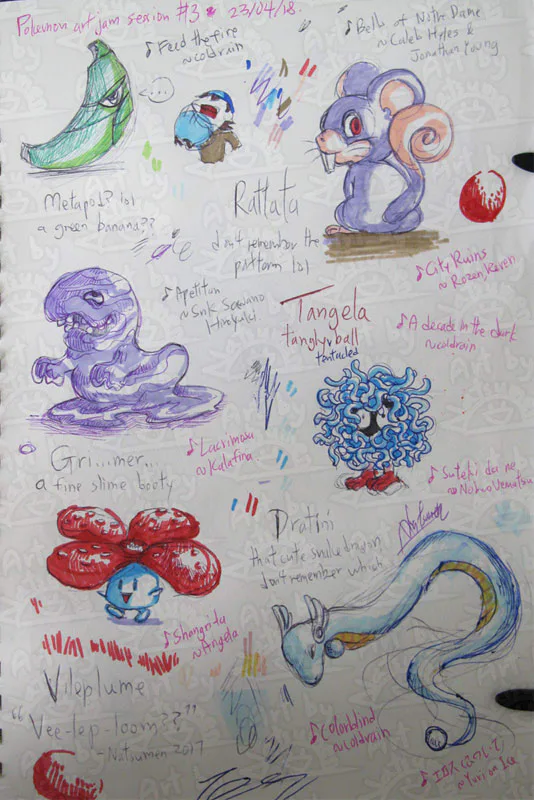 Pokemon art jam session #3 • 23/04/18.
♪ Feed the fire
~ coldrain
♪ Bells of Notre Dame
~ Caleb Hyles &
Jonathan Young
Metapod? lol
a green banana??
Rattata
don't remember the
pattern lol
♪ City Ruins
~ Rozen, Reven
♪ Apetitan
~ SnK Sawano
Hiroyuki.
Tangela
tanglyball
tentacled
♪ A decade in the dark
~ coldrain
Gri...mer...
a fine slime booty
♪ Lacrimosa
~ Kalafina
♪ Suteki da ne
~ Nobuo Uematsu
Dratini
that cute smile dragon
don't remember which
♪ Shangrila
~ Angela
Vileplume
"Vee-lep-loom??"
- Natsumen 2017
♪ Colorblind
~ coldrain
♪ エロス(について)
~ Yuri on Ice